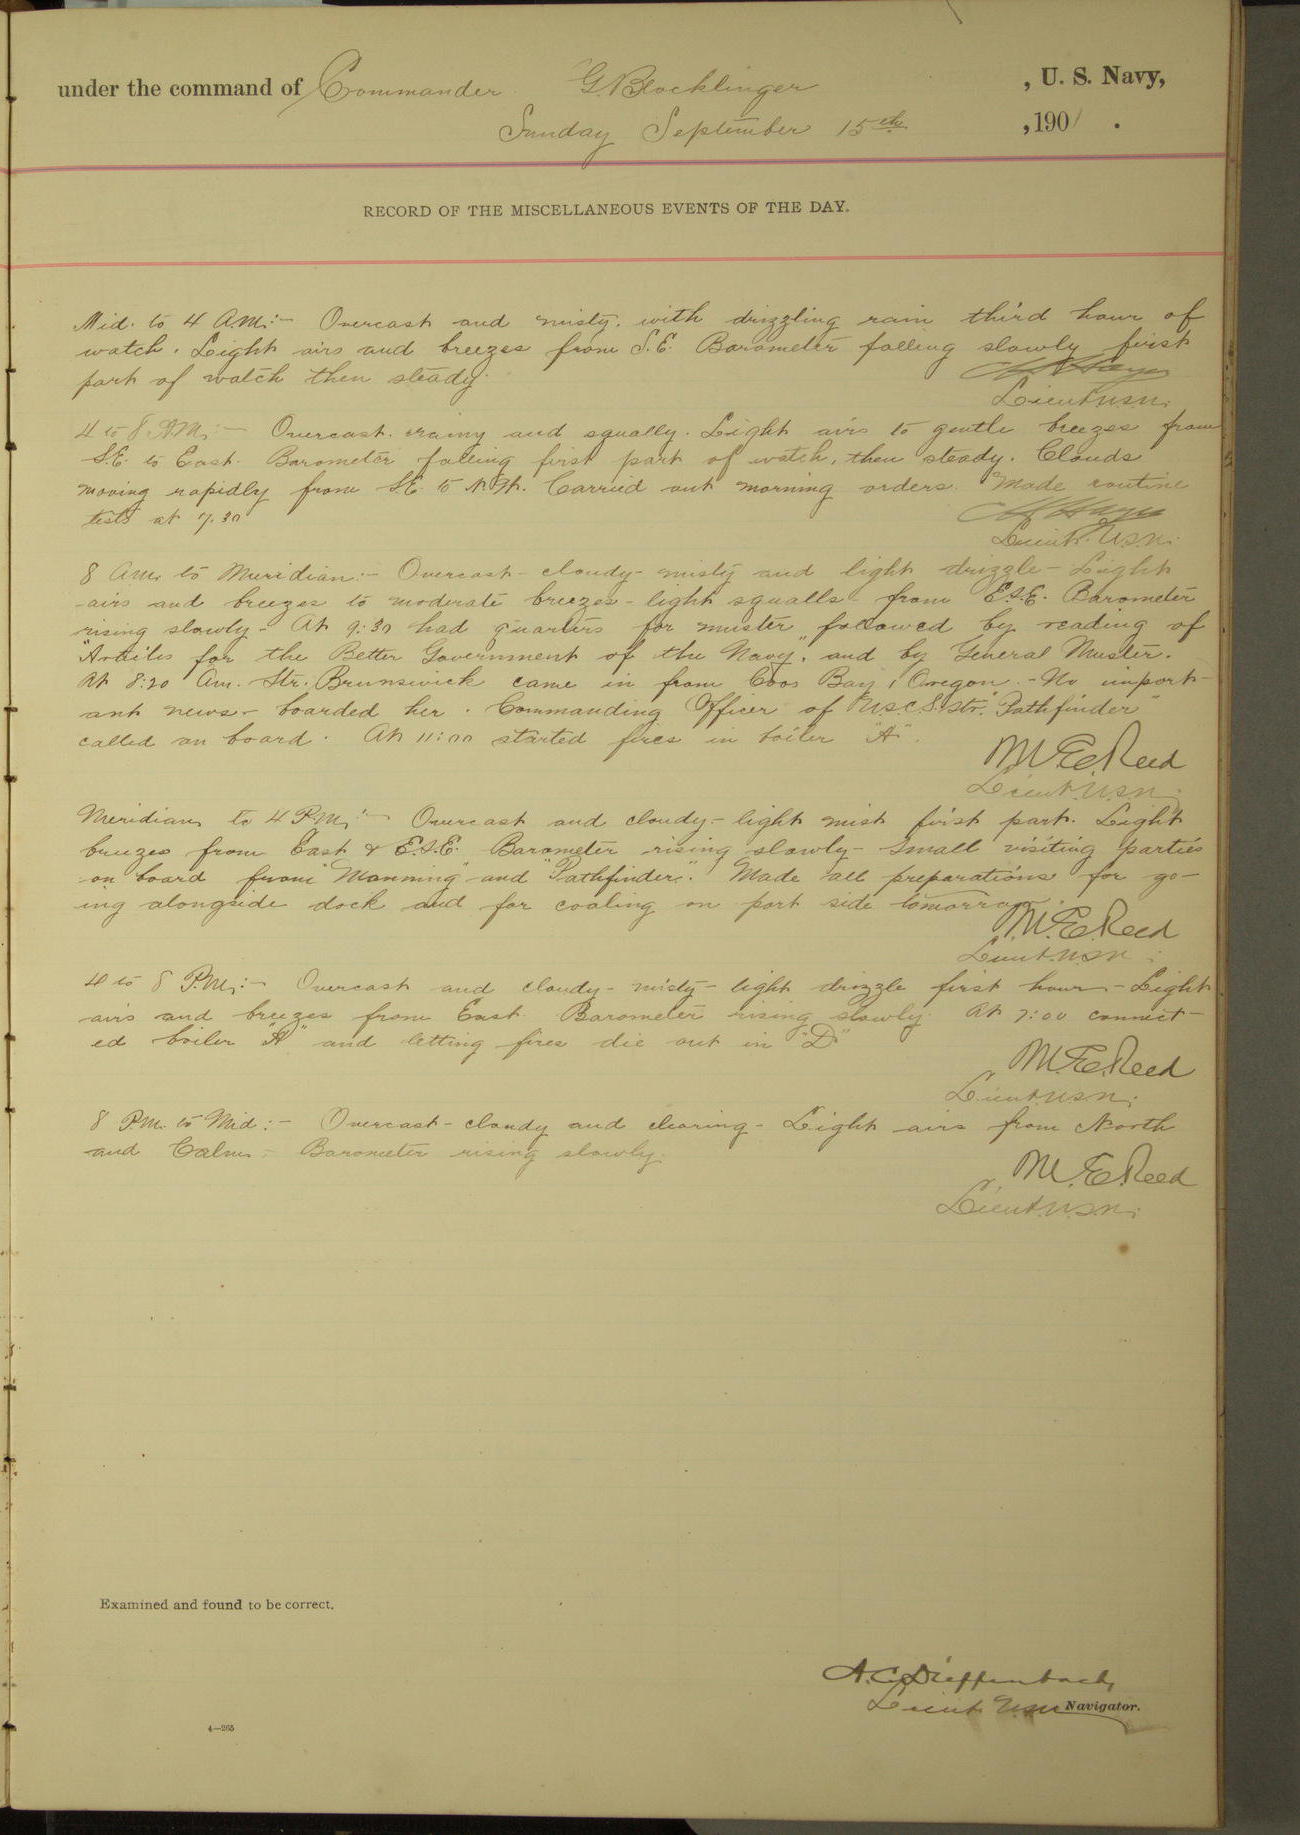 under the command of Commander G. Blocklinger , U. S. Navy,
Sunday September 15th ,1901 .
RECORD OF THE MISCELLANEOUS EVENTS OF THE DAY.
Mid. to 4 A.M:- Overcast and misty, with drizzling rain third hour of
watch. Light airs and breezes from S.E. Barometer falling slowly first
part of watch then steady.
Lieut. U.S.N.
4 to 8 A.M:- Overcast. rainy and squally. Light airs to gentle breezes from
S.E. to East. Barometer falling first part of watch, then steady. Clouds
moving rapidly from S.E. to N.W. Carried out morning orders. Made routine
tests at 7.30
Lieut. U.S.N.
8 A.M. to Meridian:- Overcast - cloudy - misty and light drizzle - Light
airs and breezes to moderate breezes - light squalls - from E.S.E. Barometer
rising slowly - At 9:30 had quarters for muster, followed by reading of
"Articles for the Better Government of the Navy", and by General Muster.
At 8:20 Am. Str. Brunswick came in from Coos Bay, Oregon. - No import-
ant news - boarded her. Commanding Officer of U.S.C.S. Str. "Pathfinder"
called on board. At 11:00 started fires in boiler "A".
M.E. Reed
Lieut. U.S.N.
Meridian to 4 P.M:- Overcast and cloudy - light mist first part. Light
breezes from East & E.S.E. Barometer rising slowly - Small visiting parties
on board from "Manning" and "Pathfinder". Made all preparations for go-
ing alongside dock and for coaling on port side tomorrow.
M.E. Reed
Lieut. U.S.N.
4 to 8 P.M:- Overcast and cloudy - misty - light drizzle first hour - Light
airs and breezes from East. Barometer rising slowly. At 7:00 connect-
ed boiler "A" and letting fires die out in "D"
M.E. Reed
Lieut. U.S.N.
8 P.M. to Mid:- Overcast - cloudy and clearing - Light airs from North
and Calm - Barometer rising slowly.
M.E. Reed
Lieut. U.S.N.
Examined and found to be correct.
A.C. Dieffenbach,
Lieut. U.S.N. Navigator.
4—265